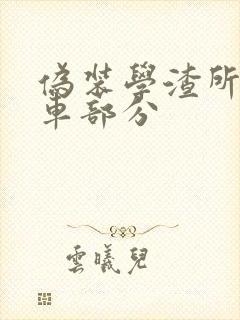 偽裝學渣所
車部分
雲曦兒